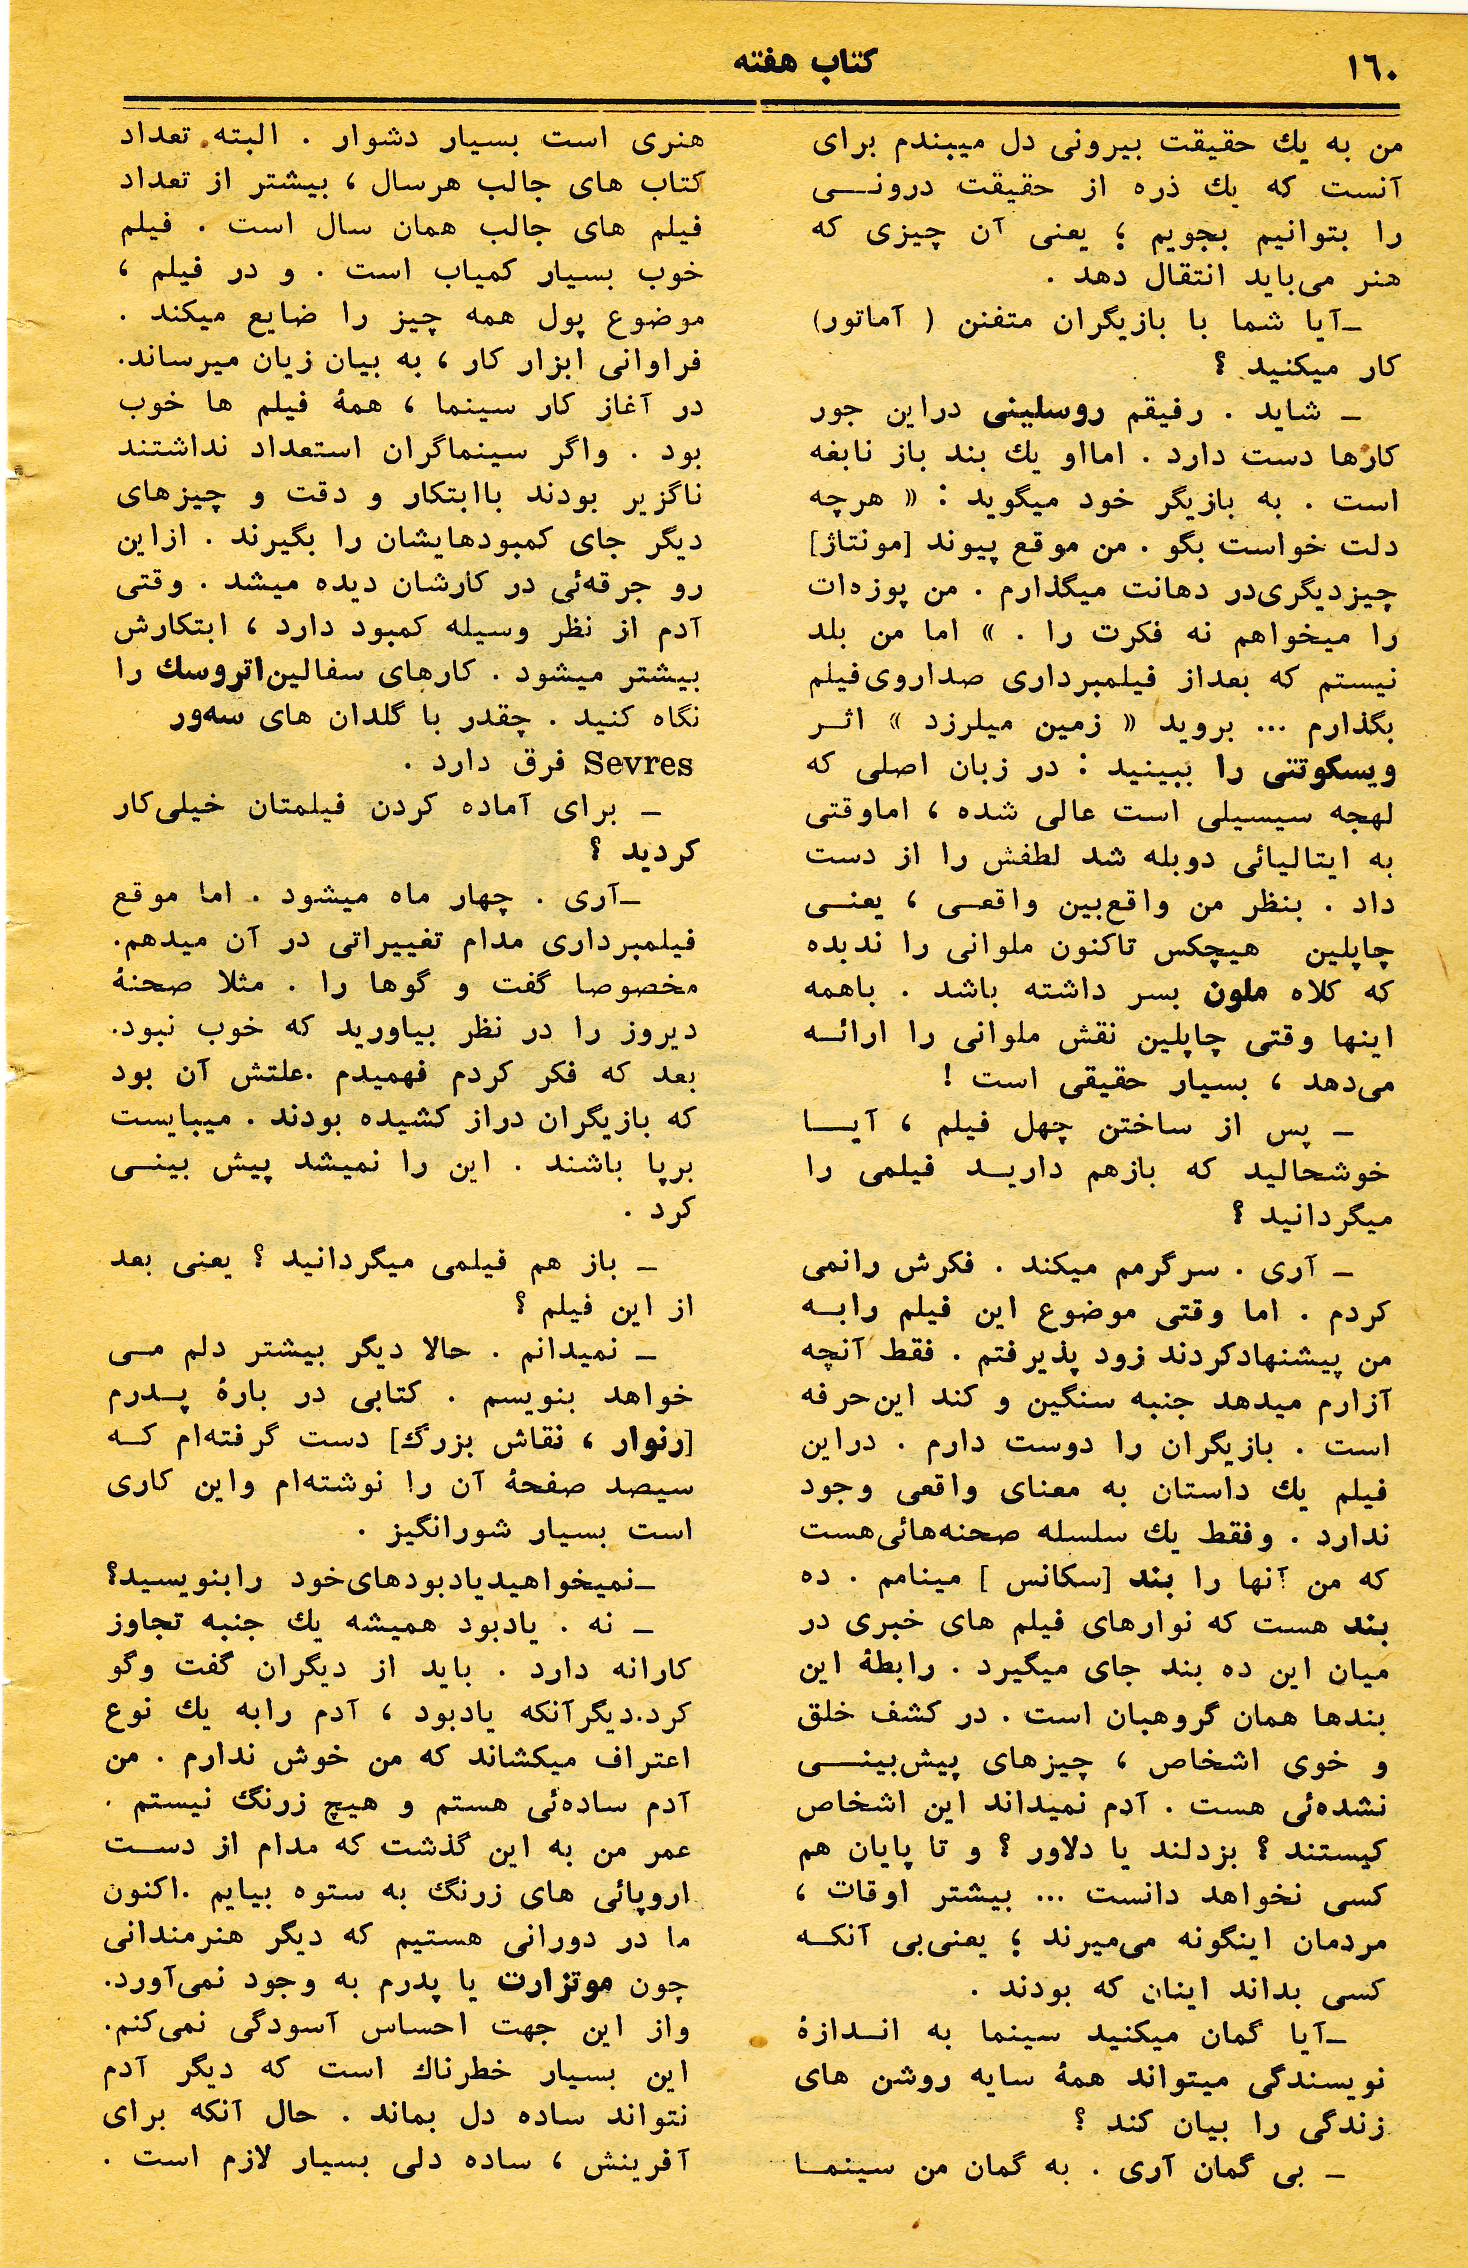 ١٦٠
کتاب هفته
من به یك حقیقت بیرونی دل میبندم برای
آنست که یك ذره از حقیقت درونــی
را بتوانیم بجوییم ؛ یعنی آن چیزی که
هنر می‌باید انتقال دهد .
ــ آیا شما با بازیگران متفنن ( آماتور)
کار میکنید ؟
ــ شاید . رفیقم روسلینی دراین جور
کارها دست دارد . امااو یك بند باز نابغه
است . به بازیگر خود میگوید : « هرچه
دلت خواست بگو . من موقع پیوند [مونتاژ]
چیزدیگری‌در دهانت میگذارم . من پوزه‌ات
را میخواهم نه فکرت را . » اما من بلد
نیستم که بعداز فیلمبرداری صداروی‌فیلم
بگذارم ... بروید « زمین میلرزد » اثــر
ویسکوتنی را ببینید : در زبان اصلی که
لهجه سیسیلی است عالی شده ، اماوقتی
به ایتالیائی دوبله شد لطفش را از دست
داد . بنظر من واقع‌بین واقعــی ، یعنــی
چاپلین هیچکس تاکنون ملوانی را ندیده
که کلاه ملون بسر داشته باشد . باهمه
اینها وقتی چاپلین نقش ملوانی را ارائــه
می‌دهد ، بسیار حقیقی است !
ــ پس از ساختن چهل فیلم ، آیــا
خوشحالید که بازهم داریــد فیلمی را
میگردانید ؟
ــ آری . سرگرمم میکند . فکرش رانمی
کردم . اما وقتی موضوع این فیلم رابــه
من پیشنهادکردند زود پذیرفتم . فقط آنچه
آزارم میدهد جنبه سنگین و کند این‌حرفه
است . بازیگران را دوست دارم . دراین
فیلم یك داستان به معنای واقعی وجود
ندارد . وفقط یك سلسله صحنه‌هائی‌هست
که من آنها را بند [سکانس ] مینامم . ده
بند هست که نوارهای فیلم های خبری در
میان این ده بند جای میگیرد . رابطهٔ این
بندها همان گروهبان است . در کشف خلق
و خوی اشخاص ، چیزهای پیش‌بینــی
نشده‌ئی هست . آدم نمیداند این اشخاص
کیستند ؟ بزدلند یا دلاور ؟ و تا پایان هم
کسی نخواهد دانست ... بیشتر اوقات ،
مردمان اینگونه می‌میرند ؛ یعنی‌بی آنکــه
کسی بداند اینان که بودند .
ــ آیا گمان میکنید سینما به انــدازهٔ
نویسندگی میتواند همهٔ سایه روشن های
زندگی را بیان کند ؟
ــ بی گمان آری . به گمان من سینمــا
هنری است بسیار دشوار . البته تعداد
کتاب های جالب هرسال ، بیشتر از تعداد
فیلم های جالب همان سال است . فیلم
خوب بسیار کمیاب است . و در فیلم ،
موضوع پول همه چیز را ضایع میکند .
فراوانی ابزار کار ، به بیان زیان میرساند.
در آغاز کار سینما ، همهٔ فیلم ها خوب
بود . واگر سینماگران استعداد نداشتند
ناگزیر بودند باابتکار و دقت و چیزهای
دیگر جای کمبودهایشان را بگیرند . ازاین
رو جرقه‌ئی در کارشان دیده میشد . وقتی
آدم از نظر وسیله کمبود دارد ، ابتکارش
بیشتر میشود . کارهای سفالین‌اتروسك را
نگاه کنید . چقدر با گلدان های سه‌ور
Sevres فرق دارد .
ــ برای آماده کردن فیلمتان خیلی‌کار
کردید ؟
ــ آری . چهار ماه میشود . اما موقع
فیلمبرداری مدام تغییراتی در آن میدهم.
مخصوصا گفت و گوها را . مثلا صحنهٔ
دیروز را در نظر بیاورید که خوب نبود.
بعد که فکر کردم فهمیدم .علتش آن بود
که بازیگران دراز کشیده بودند . میبایست
برپا باشند . این را نمیشد پیش بینــی
کرد .
ــ باز هم فیلمی میگردانید ؟ یعنی بعد
از این فیلم ؟
ــ نمیدانم . حالا دیگر بیشتر دلم مــی
خواهد بنویسم . کتابی در بارهٔ پــدرم
[رنوار ، نقاش بزرگ] دست گرفته‌ام کــه
سیصد صفحهٔ آن را نوشته‌ام واین کاری
است بسیار شورانگیز .
ــ نمیخواهیدیادبودهای‌خود رابنویسید؟
ــ نه . یادبود همیشه یك جنبه تجاوز
کارانه دارد . باید از دیگران گفت وگو
کرد.دیگرآنکه یادبود ، آدم رابه یك نوع
اعتراف میکشاند که من خوش ندارم . من
آدم ساده‌ئی هستم و هیچ زرنگ نیستم .
عمر من به این گذشت که مدام از دســت
اروپائی های زرنگ به ستوه بیایم .اکنون
ما در دورانی هستیم که دیگر هنرمندانی
چون موتزارت یا پدرم به وجود نمی‌آورد.
واز این جهت احساس آسودگی نمی‌کنم.
این بسیار خطرناك است که دیگر آدم
نتواند ساده دل بماند . حال آنکه برای
آفرینش ، ساده دلی بسیار لازم است .